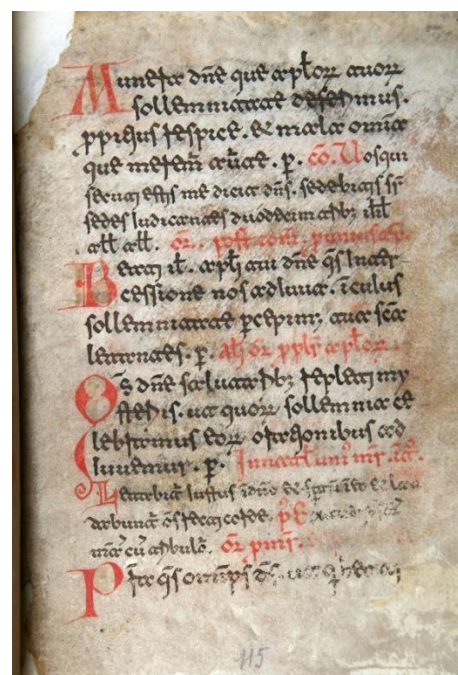 Munera dñe que aplorꝝ tuorꝝ
sollemnitate deferimus.
ꝓpitius respice. & mala omnia
que meremur auerte. p. cō. Uosqui
secuti estis me dicit dñs. sedebitis sr̄
sedes iudicantes duodecim tribꝫ isrł
ałł ałł. or̄. post com̄.
Beati ił. apłi tui dñe q̄s inter
cessione nos adiuua. cuius
sollemnitate ꝑcepim; tua sc̄a
letantes. p. or aplor
s dñe salutaribꝫ repleti my
steriis. ut quorꝝ sollemnia ce
lebramus eorꝝ orationibus ad
iuuemur. p. In natał uni' mr̄.
Letabit̄ iustus ī dño &
dabunt̄ om̄s recti corde. ps̄
cū tribulor̄. Or̄
P q̄s omps d̄s. ut qui beati
115